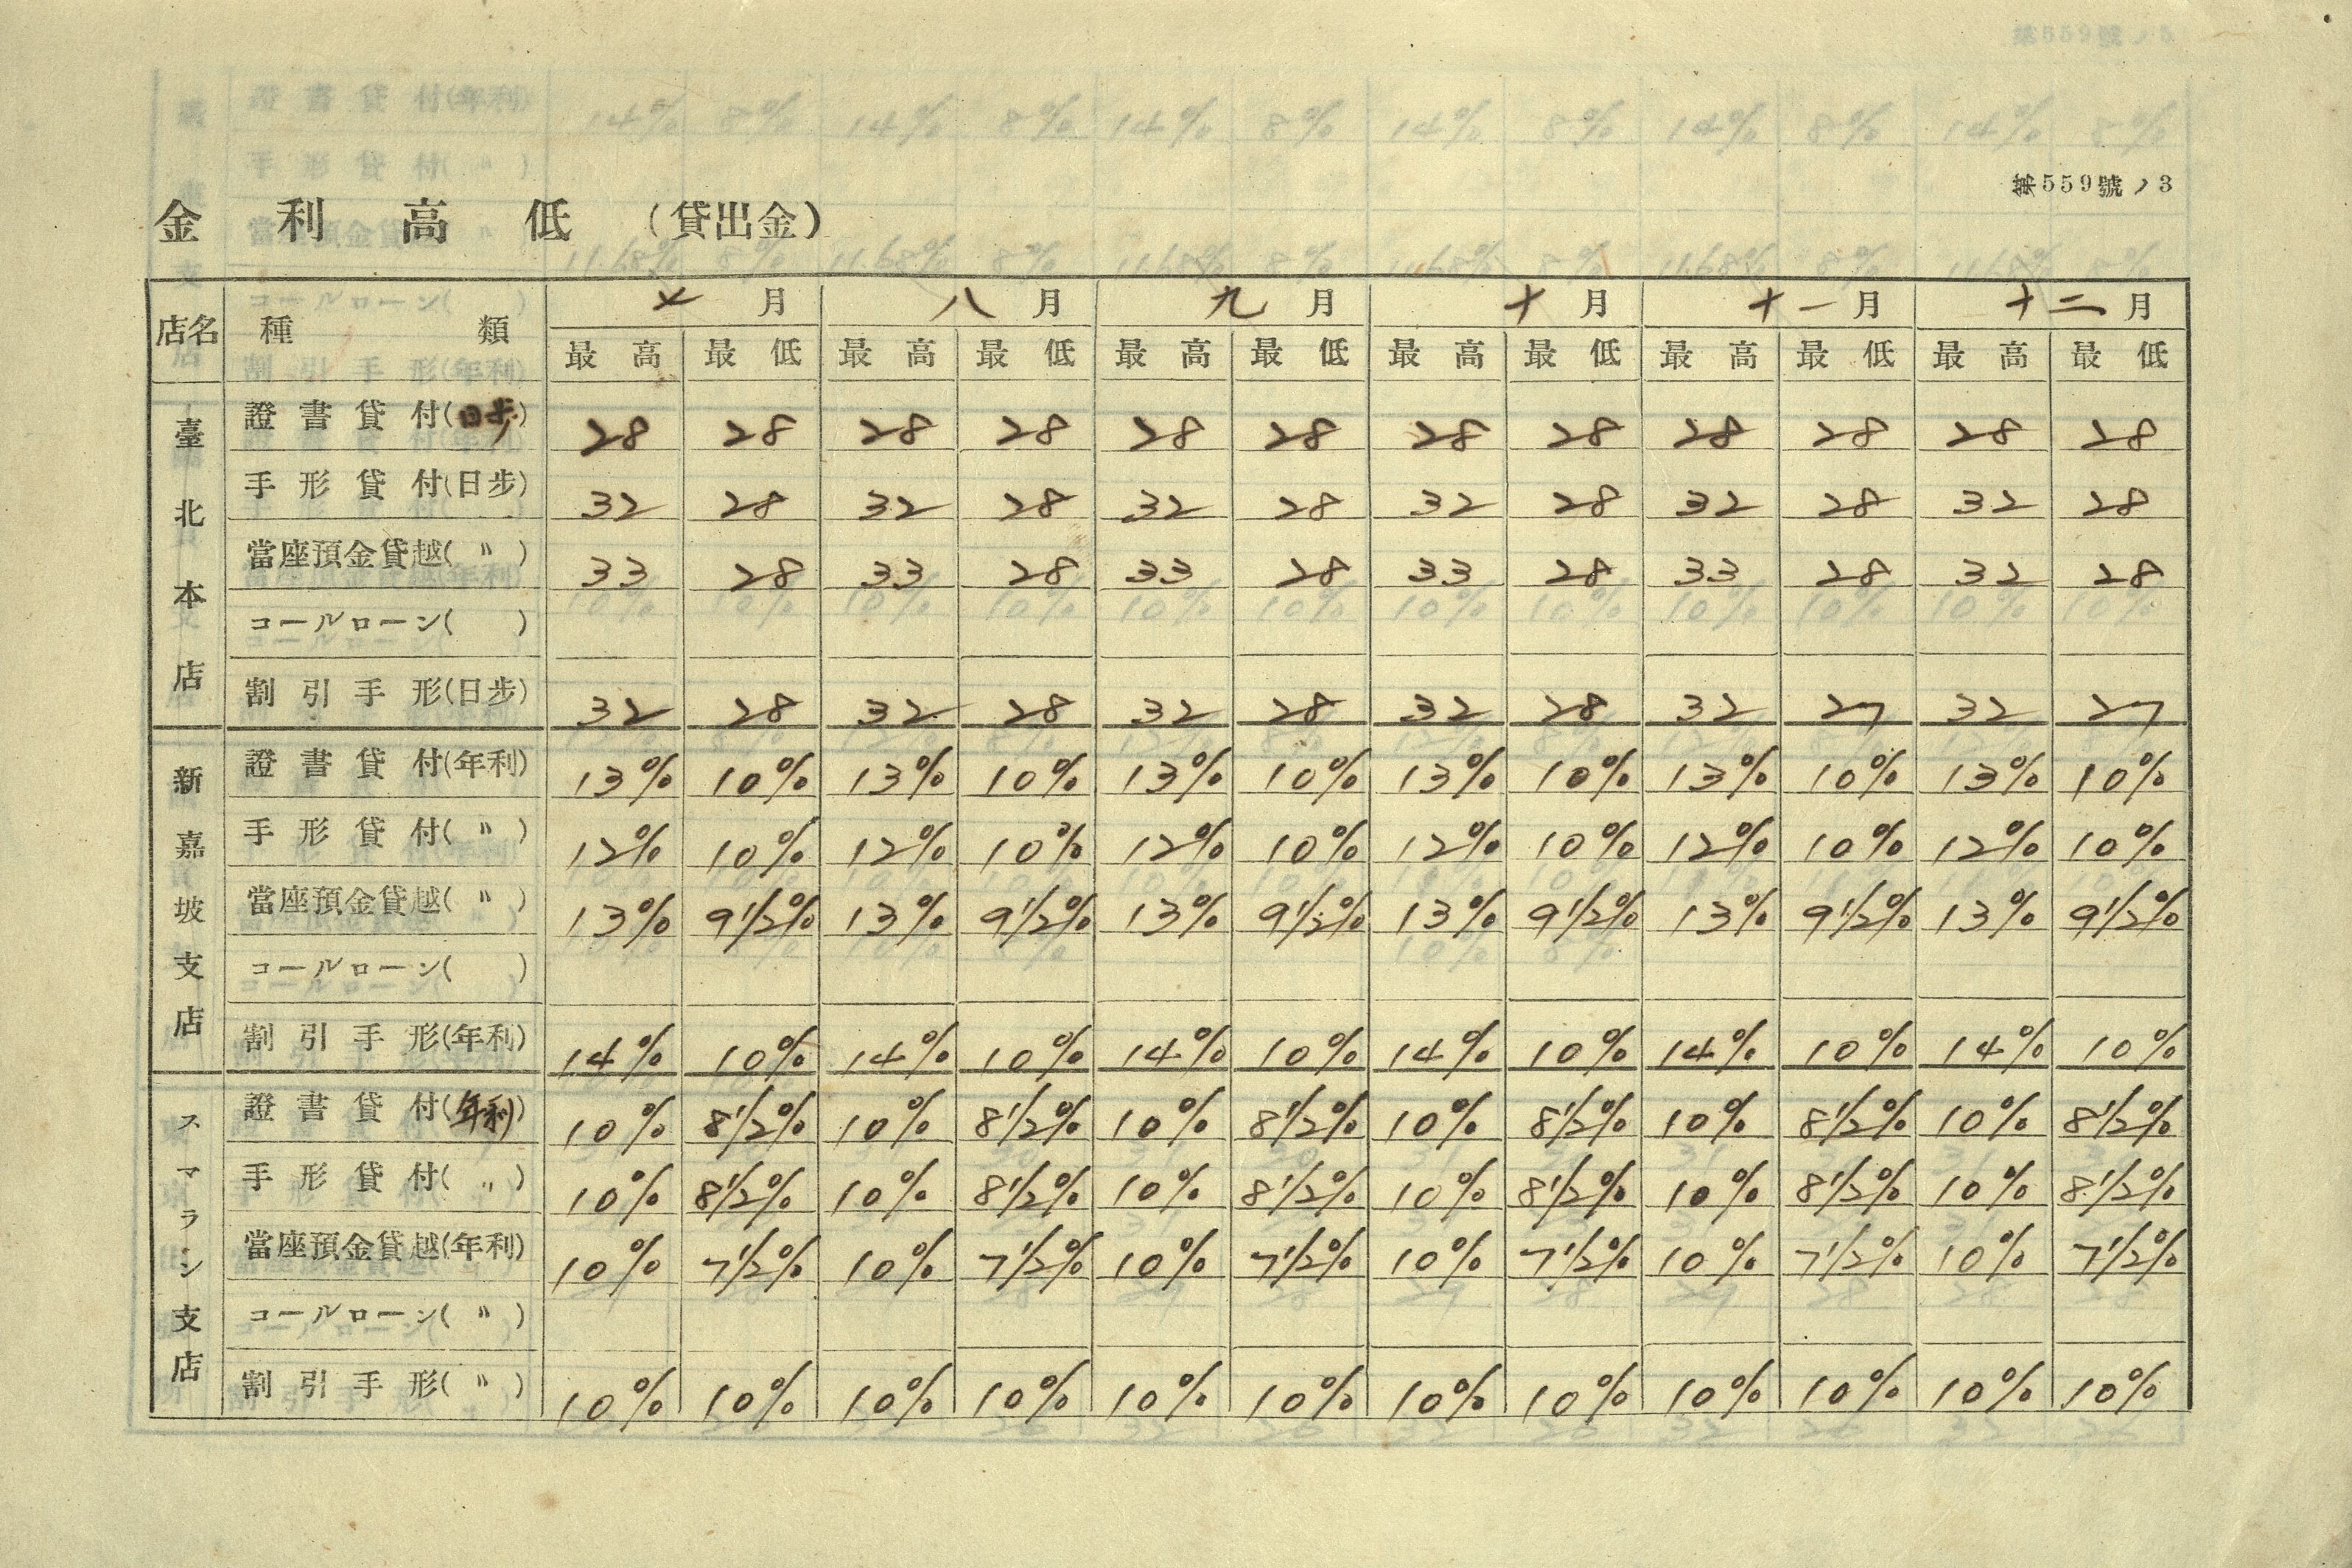 第559號ノ3
金利高低（貸出金）
店名 種類 七月 八月 九月 十月 十一月 十二月
最高 最低 最高 最低 最高 最低 最高 最低 最高 最低 最高 最低
臺北本店
證書貸付(日歩) 28 28 28 28 28 28 28 28 28 28 28 28
手形貸付(日歩) 32 28 32 28 32 28 32 28 32 28 32 28
當座預金貸越( 〃 ) 33 28 33 28 33 28 33 28 33 28 32 28
コールローン( )
割引手形(日歩) 32 28 32 28 32 28 32 28 32 27 32 27
新嘉坡支店
證書貸付(年利) 13% 10% 13% 10% 13% 10% 13% 10% 13% 10% 13% 10%
手形貸付( 〃 ) 12% 10% 12% 10% 12% 10% 12% 10% 12% 10% 12% 10%
當座預金貸越( 〃 ) 13% 9½% 13% 9½% 13% 9½% 13% 9½% 13% 9½% 13% 9½%
コールローン( )
割引手形(年利) 14% 10% 14% 10% 14% 10% 14% 10% 14% 10% 14% 10%
スマラン支店
證書貸付(年利) 10% 8½% 10% 8½% 10% 8½% 10% 8½% 10% 8½% 10% 8½%
手形貸付( 〃 ) 10% 8½% 10% 8½% 10% 8½% 10% 8½% 10% 8½% 10% 8½%
當座預金貸越(年利) 10% 7½% 10% 7½% 10% 7½% 10% 7½% 10% 7½% 10% 7½%
コールローン( 〃 )
割引手形( 〃 ) 10% 10% 10% 10% 10% 10% 10% 10% 10% 10% 10% 10%